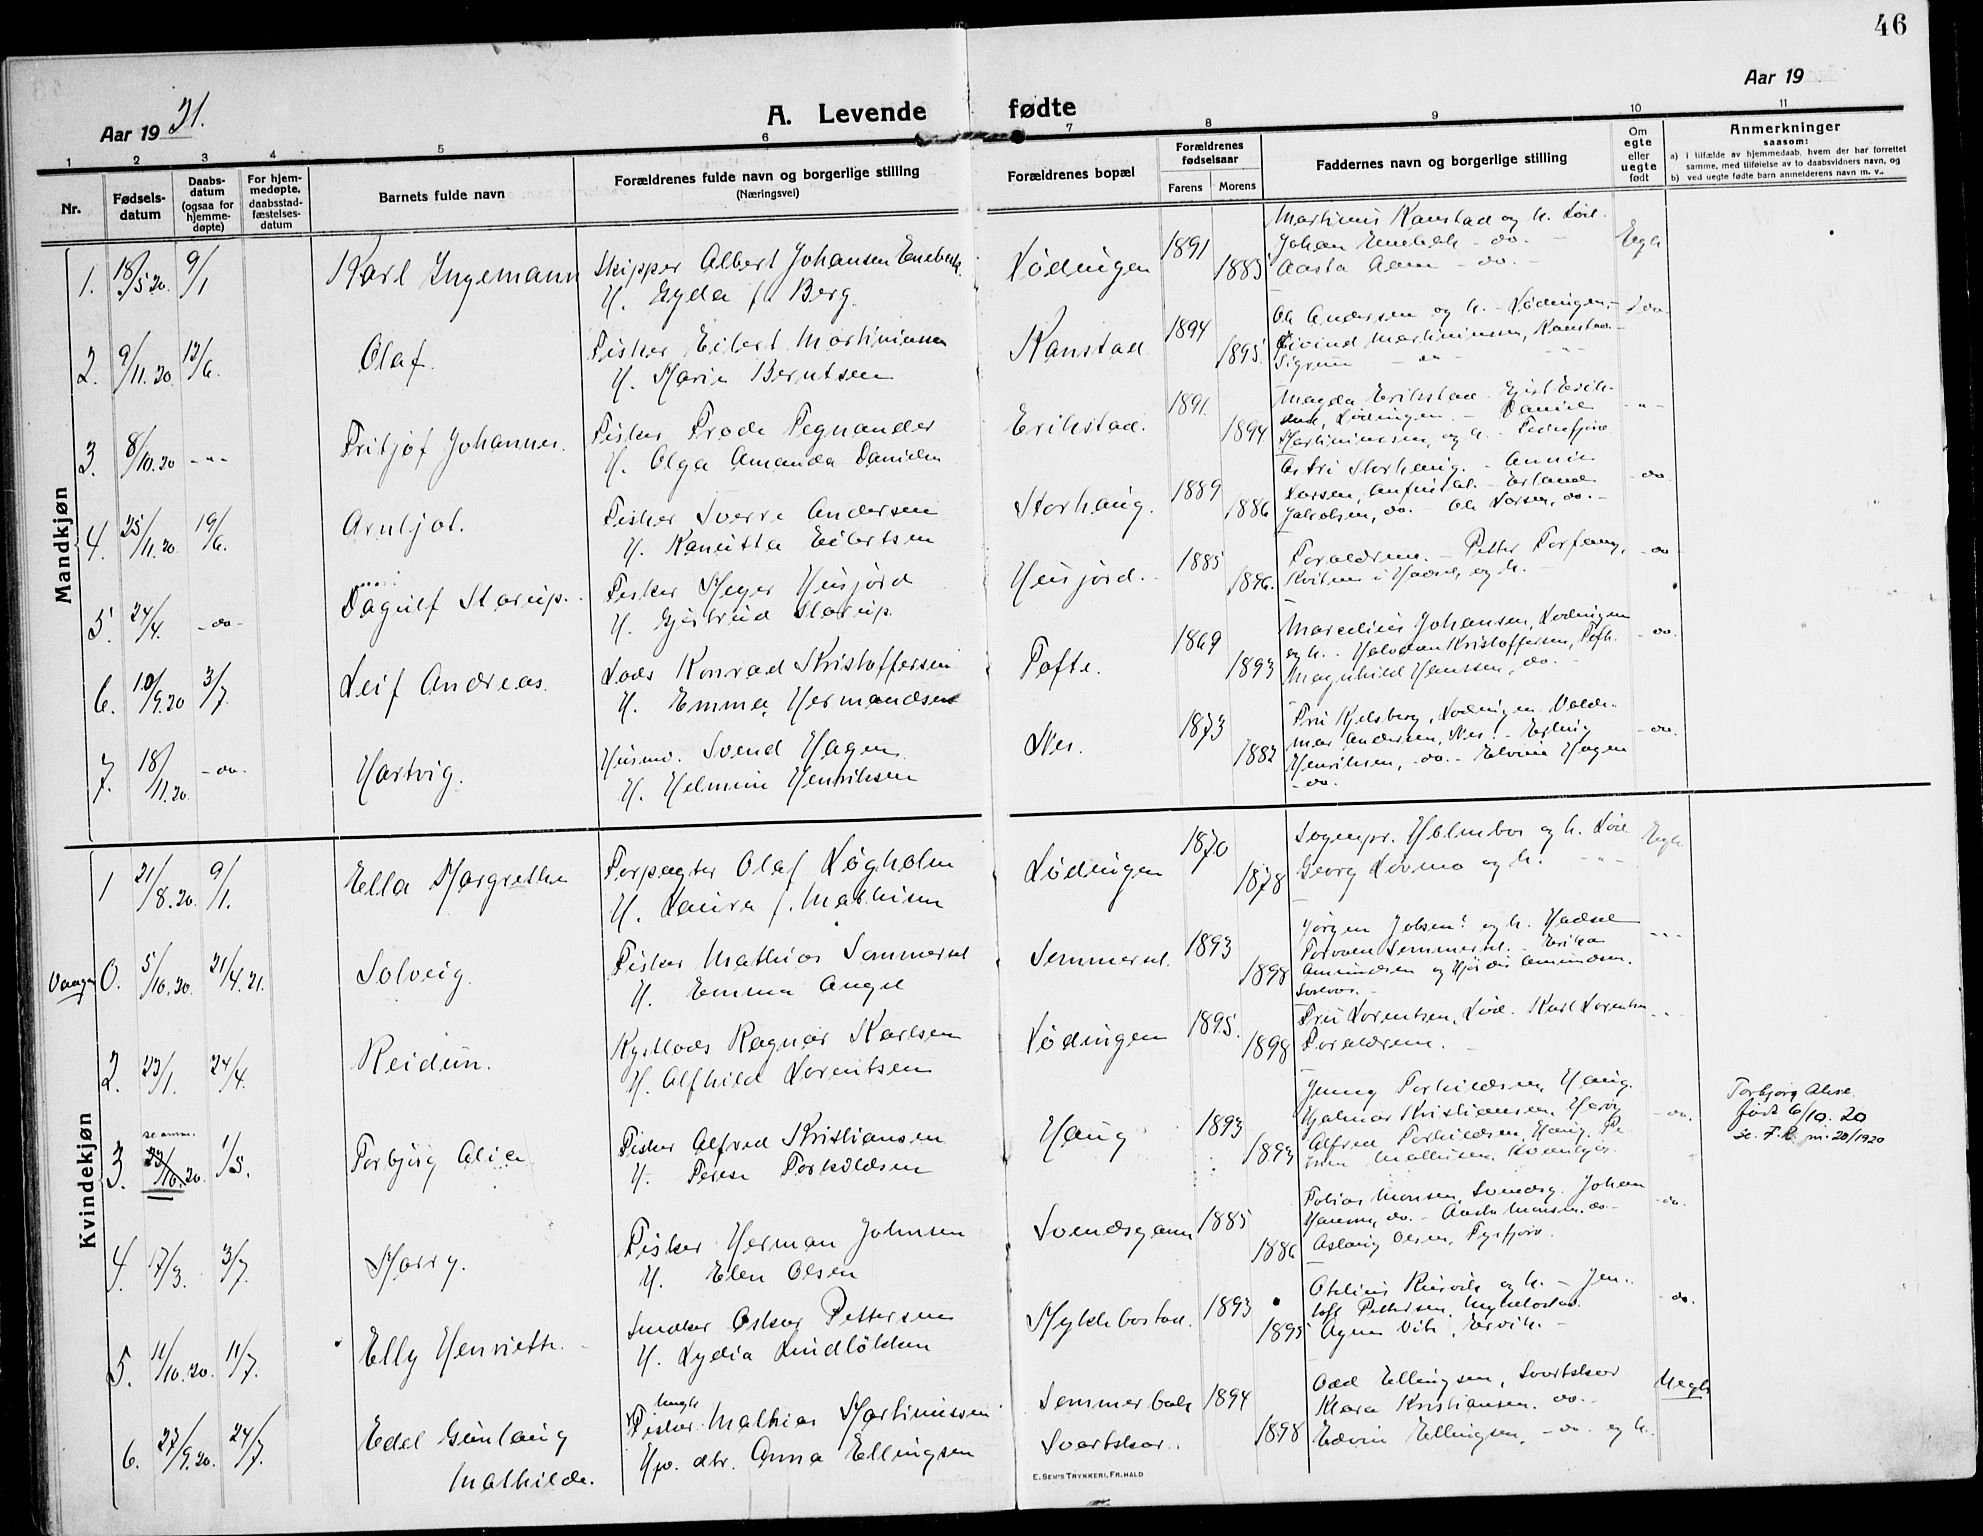 46
Aar 19 21.
A. Levende fødte
Aar 19
1 2 3 4 5 6 7 8 9 10 11
Nr.
Fødsels-
datum
Daabs-
datum
(ogsaa for
hjemme-
døpte)
For hjem-
medøpte,
daabsstad-
fæstelses-
datum
Barnets fulde navn
Forældrenes fulde navn og borgerlige stilling
(Næringsvei)
Forældrenes bopæl
Forældrenes
fødselsaar
Farens Morens
Faddernes navn og borgerlige stilling
Om
egte
eller
uegte
født
Anmerkninger
saasom:
a) i tilfælde av hjemmedaab, hvem der har forrettet
samme, med tilføielse av to daabsvidners navn, og
b) ved uegte fødte barn anmelderens navn m. v..
Mandkjøn
1. 18/5 20. 9/1 Karl Ingemann
Skipper Albert Johansen Enebak
H. Gyda f. Berg.
Lødingen 1891 1885
Martinus Kanstad og h. Lød.
Johan Enebak - do. -
Aasta Aam - do. -
Egte
2. 9/11.20 12/6. Olaf.
Fisker Eilert Martinussen
H. Marie Berntsen
Kanstad 1894 1895.
Ole Andersen og h. - Lødingen, -
Eivind Martinussen, Kanstad. -
Sigrun - do - - " -
do.
3. 8/10.20 - " - Fritjof Johannes.
Fisker Frode Pegnander
H. Olga Amanda Danielsen
Erikstad. 1891. 1894
Magda Erikstad
Lødingen. - Daniel
Martinussen, og h. -
- " -
4. 25/11.20. 19/6. Arnljot.
Fisker Sverre Andersen
H. Kanutta Eilertsen
Storhaug. 1889 1886
Astri Storhaug. - Annie
Larsen, - Erland
Jakobsen, do. - Ole Larsen, do. -
- do.
5. 24/4. - do - Dagulf Starup.
Fisker Meyer Husjord
H. Gjertrud Starup.
Husjord. 1885 1896.
Forældrene. - Petter Torfang,
Kvitnes i Hadsel, og h. -
- do -
6. 10/9.20 3/7. Leif Andreas.
Lods Konrad Kristoffersen
H. Emma Hermandsen
Tofte. 1869 1893
Marcelius Johansen, Lødingen
og h. - Halvdan Kristoffersen, Tofte.
Magnhild Hanssen, do. -
- do.
7. 18/11.20. - do. Hartvig.
Husm. Svend Hagen
H. Helmine Henriksen
Nes. 1873 1882
Fru Kjelsberg, Lødingen. Valde-
mar Andersen, Nes. - Erling
Henriksen, - do. - Elvine Hagen
- do.
- do.
Kvindekjøn
1 21/8.20. 9/1. Ella Margrethe
Forpagter Olaf Løgholm
H. Laura f. Mathisen
Lødingen 1870 1878
Sognepr. Holmboe og h. Lød.
Georg Lovmo og h. - " -
Egte
Vaagan 0. 5/10.20. 21/4.21. Solveig.
Fisker Mathias Sommersel
H. Emma Angel
Sommersel. 1893 1898
Jørgen Jobsen? og h. Hadsel
Torvven Sommersel. - Erika
Amundsen og Hjørdis Amundsen.
- " -
2. 23/1. 24/4. Reidun.
Kystlods Ragnar Karlsen
H. Alfhild Lorentsen
Lødingen 1895. 1898
Fru Lorentsen, Lød. Karl Lorentsen
Forældrene. -
- " -
3. se anm. 23/10.20. 1/5. Torbjørg Alice
Fisker Alfred Kristiansen
H. Terese Torkildsen
Haug 1893 1893
Jenny Torkildsen, Haug.
Hjalmar Kristiansen,
Alfred Torkildsen, Haug.
Mathisen,
- do.
Torbjørg Alise.
født 6/10.20
se. F.R. nr. 20/1920
4. 17/3. 3/7. Marry.
Fisker Herman Johnsen
H. Elen Olsen
Svendsgam 1885 1886
Tobias Monsen, Svendsg. Johan
Hansen, do. - Aasta Monsen, do -
Aslaug Olsen, Tysfjord.
- do.
5. 11/10.20. 11/7. Elly Henriette.
Snedker Oskar Pettersen
H. Lydia Lindløkken
Myklebostad. 1893 1895
Othilius Rinvik og h. - Jen-
toft Pettersen, Myklebostad.
Agnes Vik, Ervik. -
- do.
6. 27/9.20. 24/7. Edel Gunlaug
Mathilde.
Ungk.
Fisker Mathias Martinussen
Hp. dtr. Anna Ellingsen
Sommerbak 1894
Svartskar. 1898
Odd Ellingsen, Svartskar
Klara Kristiansen. do. -
Edvin Ellingsen, - do. og h.
Uegte
E. SEM'S TRYKKERI, FR.HALD